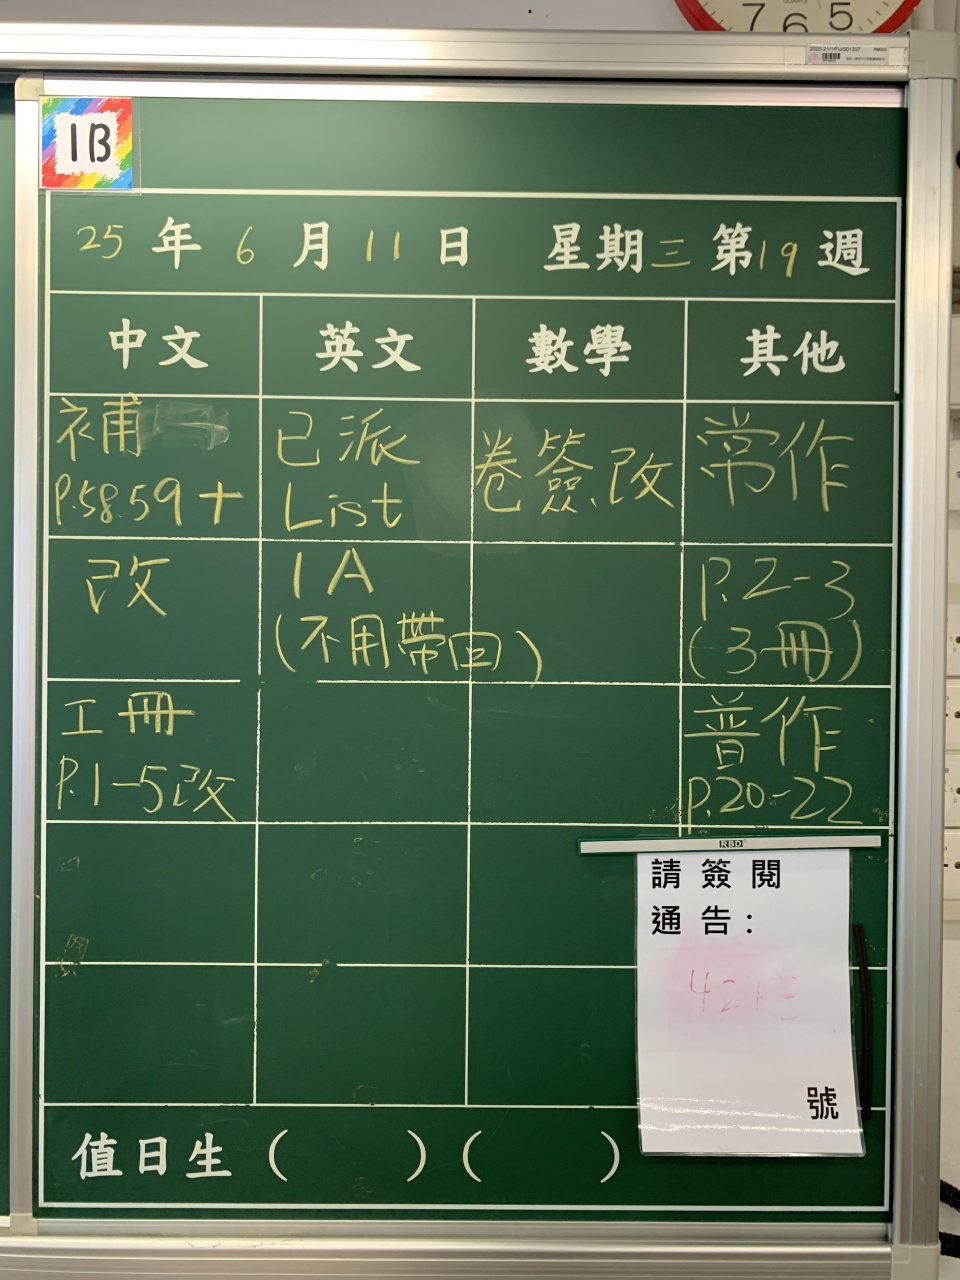 7 6 5
1B
25 年 6 月 11 日 星期三 第19週
中文 英文 數學 其他
補
P.58.59+
改
工冊
P.1-5改
已派
List
1A
(不用帶回)
卷簽、改
常作
P.2-3
(3冊)
普作
P.20-22
RBD
請簽閱
通告:
號
值日生 ( ) ( )